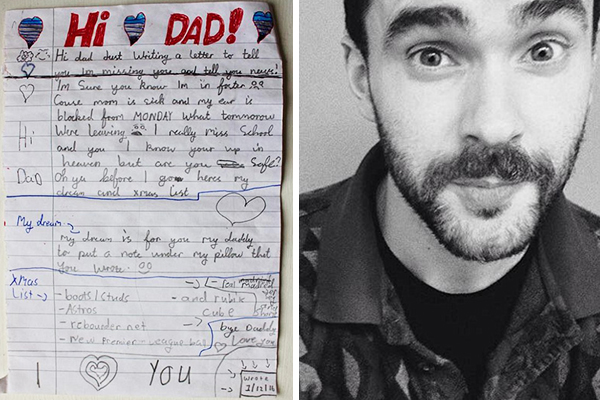 Hi DAD!
Hi dad Just Writing a letter to tell
you Im missing you and tell you news!
I'm Sure you know Im in foster
Couse mom is sick and my ear is
blocked from MONDAY What tommorow
Hi
Were leaving I really miss School
and you I know your up in
heaven but are you Safe?
DaD
Oh ya before I go heres my
dream and xmas list
My dream
my dream is for you my daddy
to put a note under my pillow that
you wrote.
Xmas
List
- boots/studs
- Astros
- rebounder net
- new Premier-league ball
- and rubix
cube
bye Daddy
Love you
I YOU
Wrote